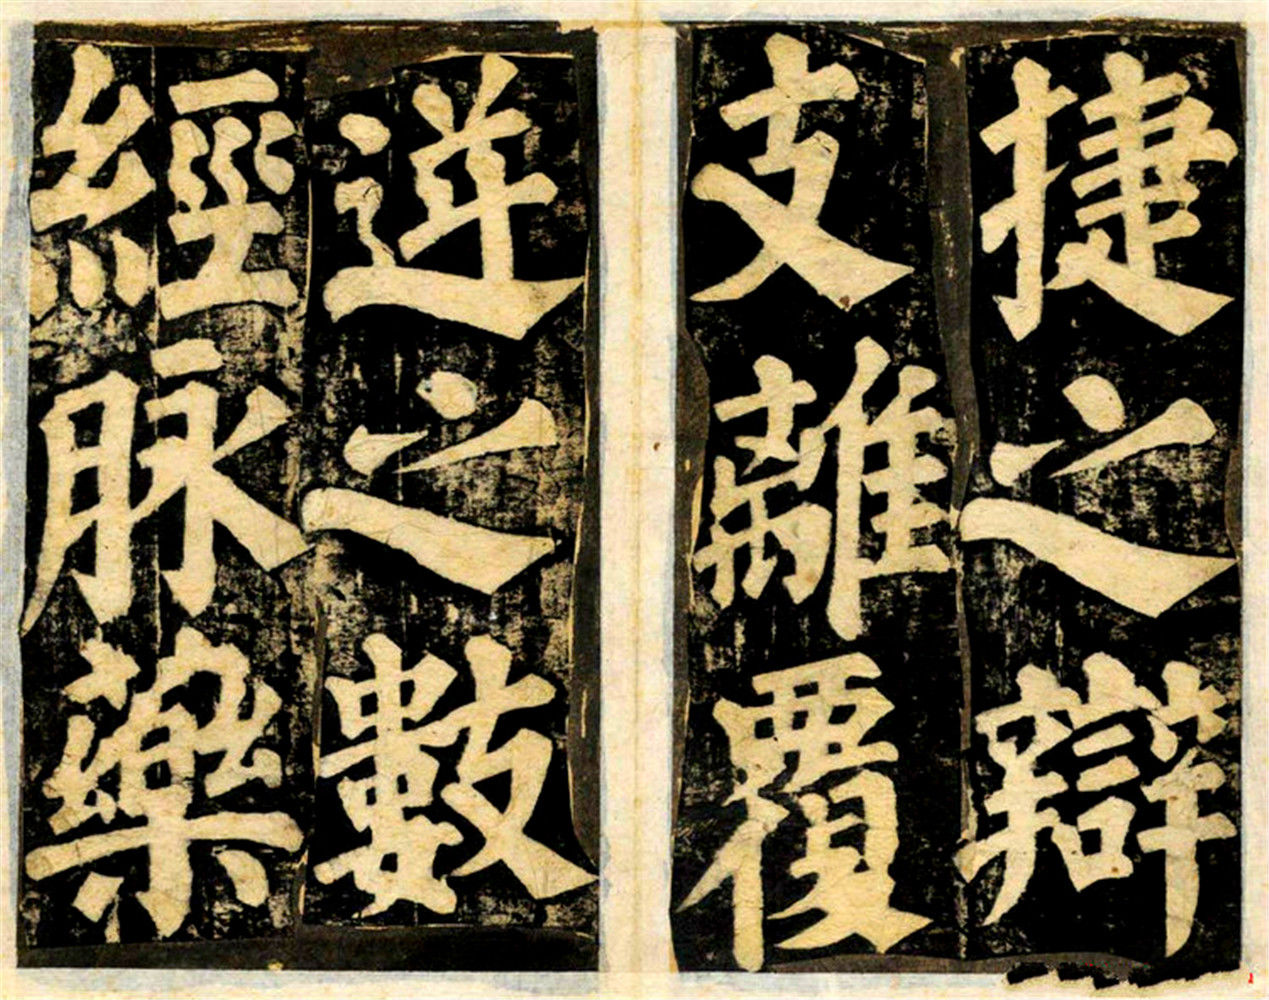 捷之辯
支離覆
逆之數
經脉藥